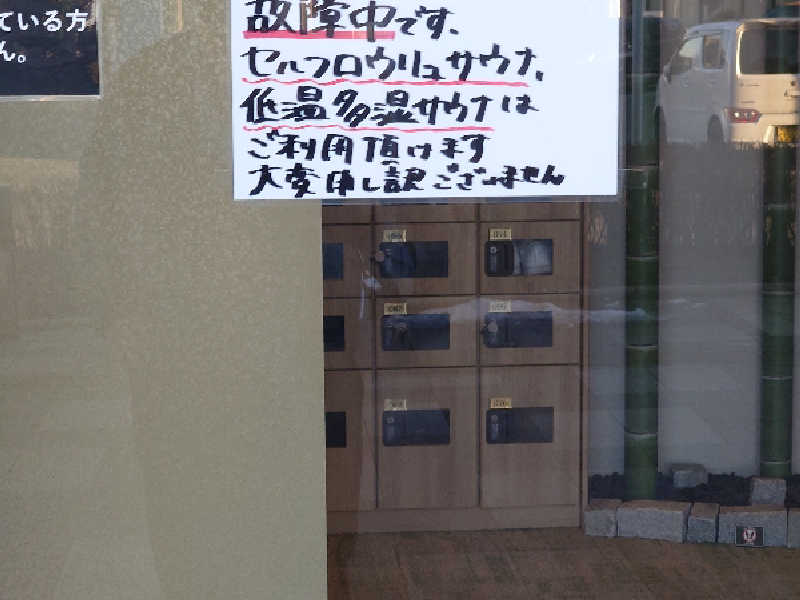 ている方
ん。
故障中です、
セルフロウリュサウナ、
低温多湿サウナは
ご利用頂けます
大変申し訳ございません